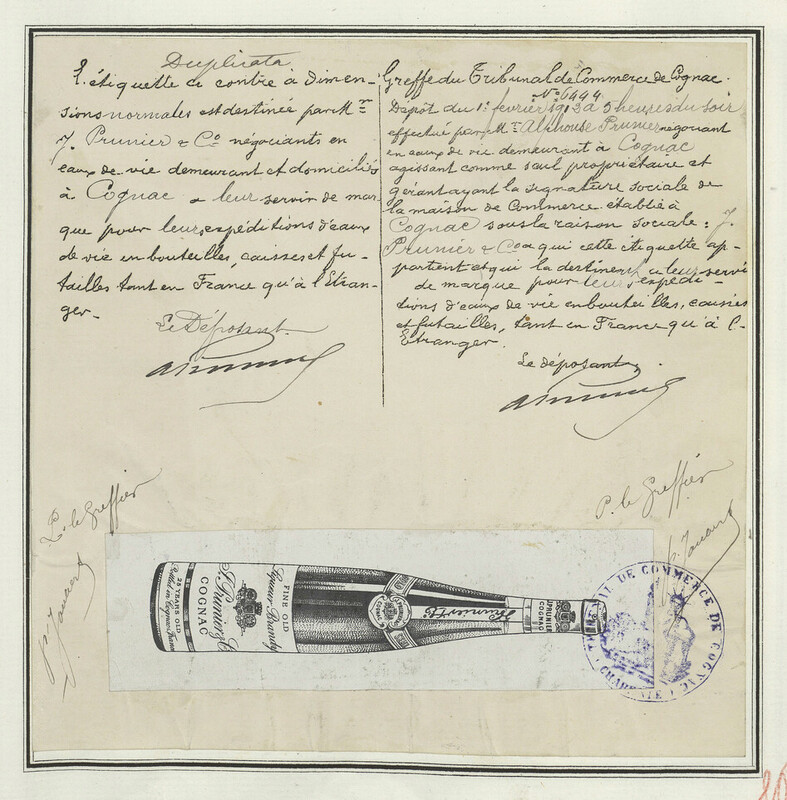 Duplicata
L'étiquette ci contre à dimen-
sions normales est destinée par Mr
J. Prunier & Co négociants en
eaux de vie demeurant et domiciliés
à Cognac a leur servir de mar
que pour leurs expéditions d'eaux
de vie en bouteilles, caisses et fu-
tailles tant en France qu'à l'Etran-
ger.-
Le Déposant.
Greffe du Tribunal de Commerce de Cognac.
No 6444
Dépôt du 1er février à 5 heures du soir
effectué par Mr Alphonse Prunier négociant
en eaux de vie demeurant à Cognac
agissant comme seul propriétaire et
gérant ayant la signature sociale de
la maison de Commerce établie à
Cognac sous la raison sociale: J.
Prunier & Co a qui cette étiquette ap-
partient et qui la destinent a leur servi
de marque pour leurs expédi-
tions d'eaux de vie en bouteilles, caisses
et futailles, tant en France qu'à l'-
Etranger.
Le déposant.
P. le Greffier
P. le Greffier
25 YEARS OLD
Bottled in Cognac France
J. Prunier & Co
COGNAC
Liqueur Brandy
FINE OLD
COGNAC
J. PRUNIER & Co
COGNAC
TRIBUNAL DE COMMERCE DE COGNAC
(CHARENTE)